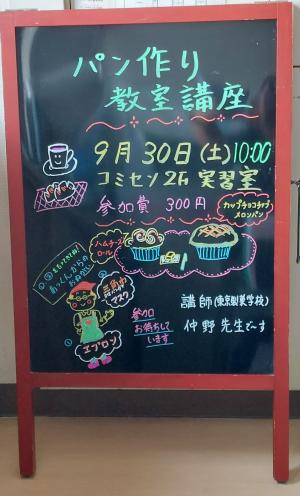 パン作り
教室講座
9月30日(土)10:00
コミセン2F 実習室
参加費 300円
カップチョコチップ
メロンパン
ハムチーズ
ロール
三角巾
マスク
エプロン
参加
お待ちして
います
講師(東京製菓学校)
仲野先生でーす